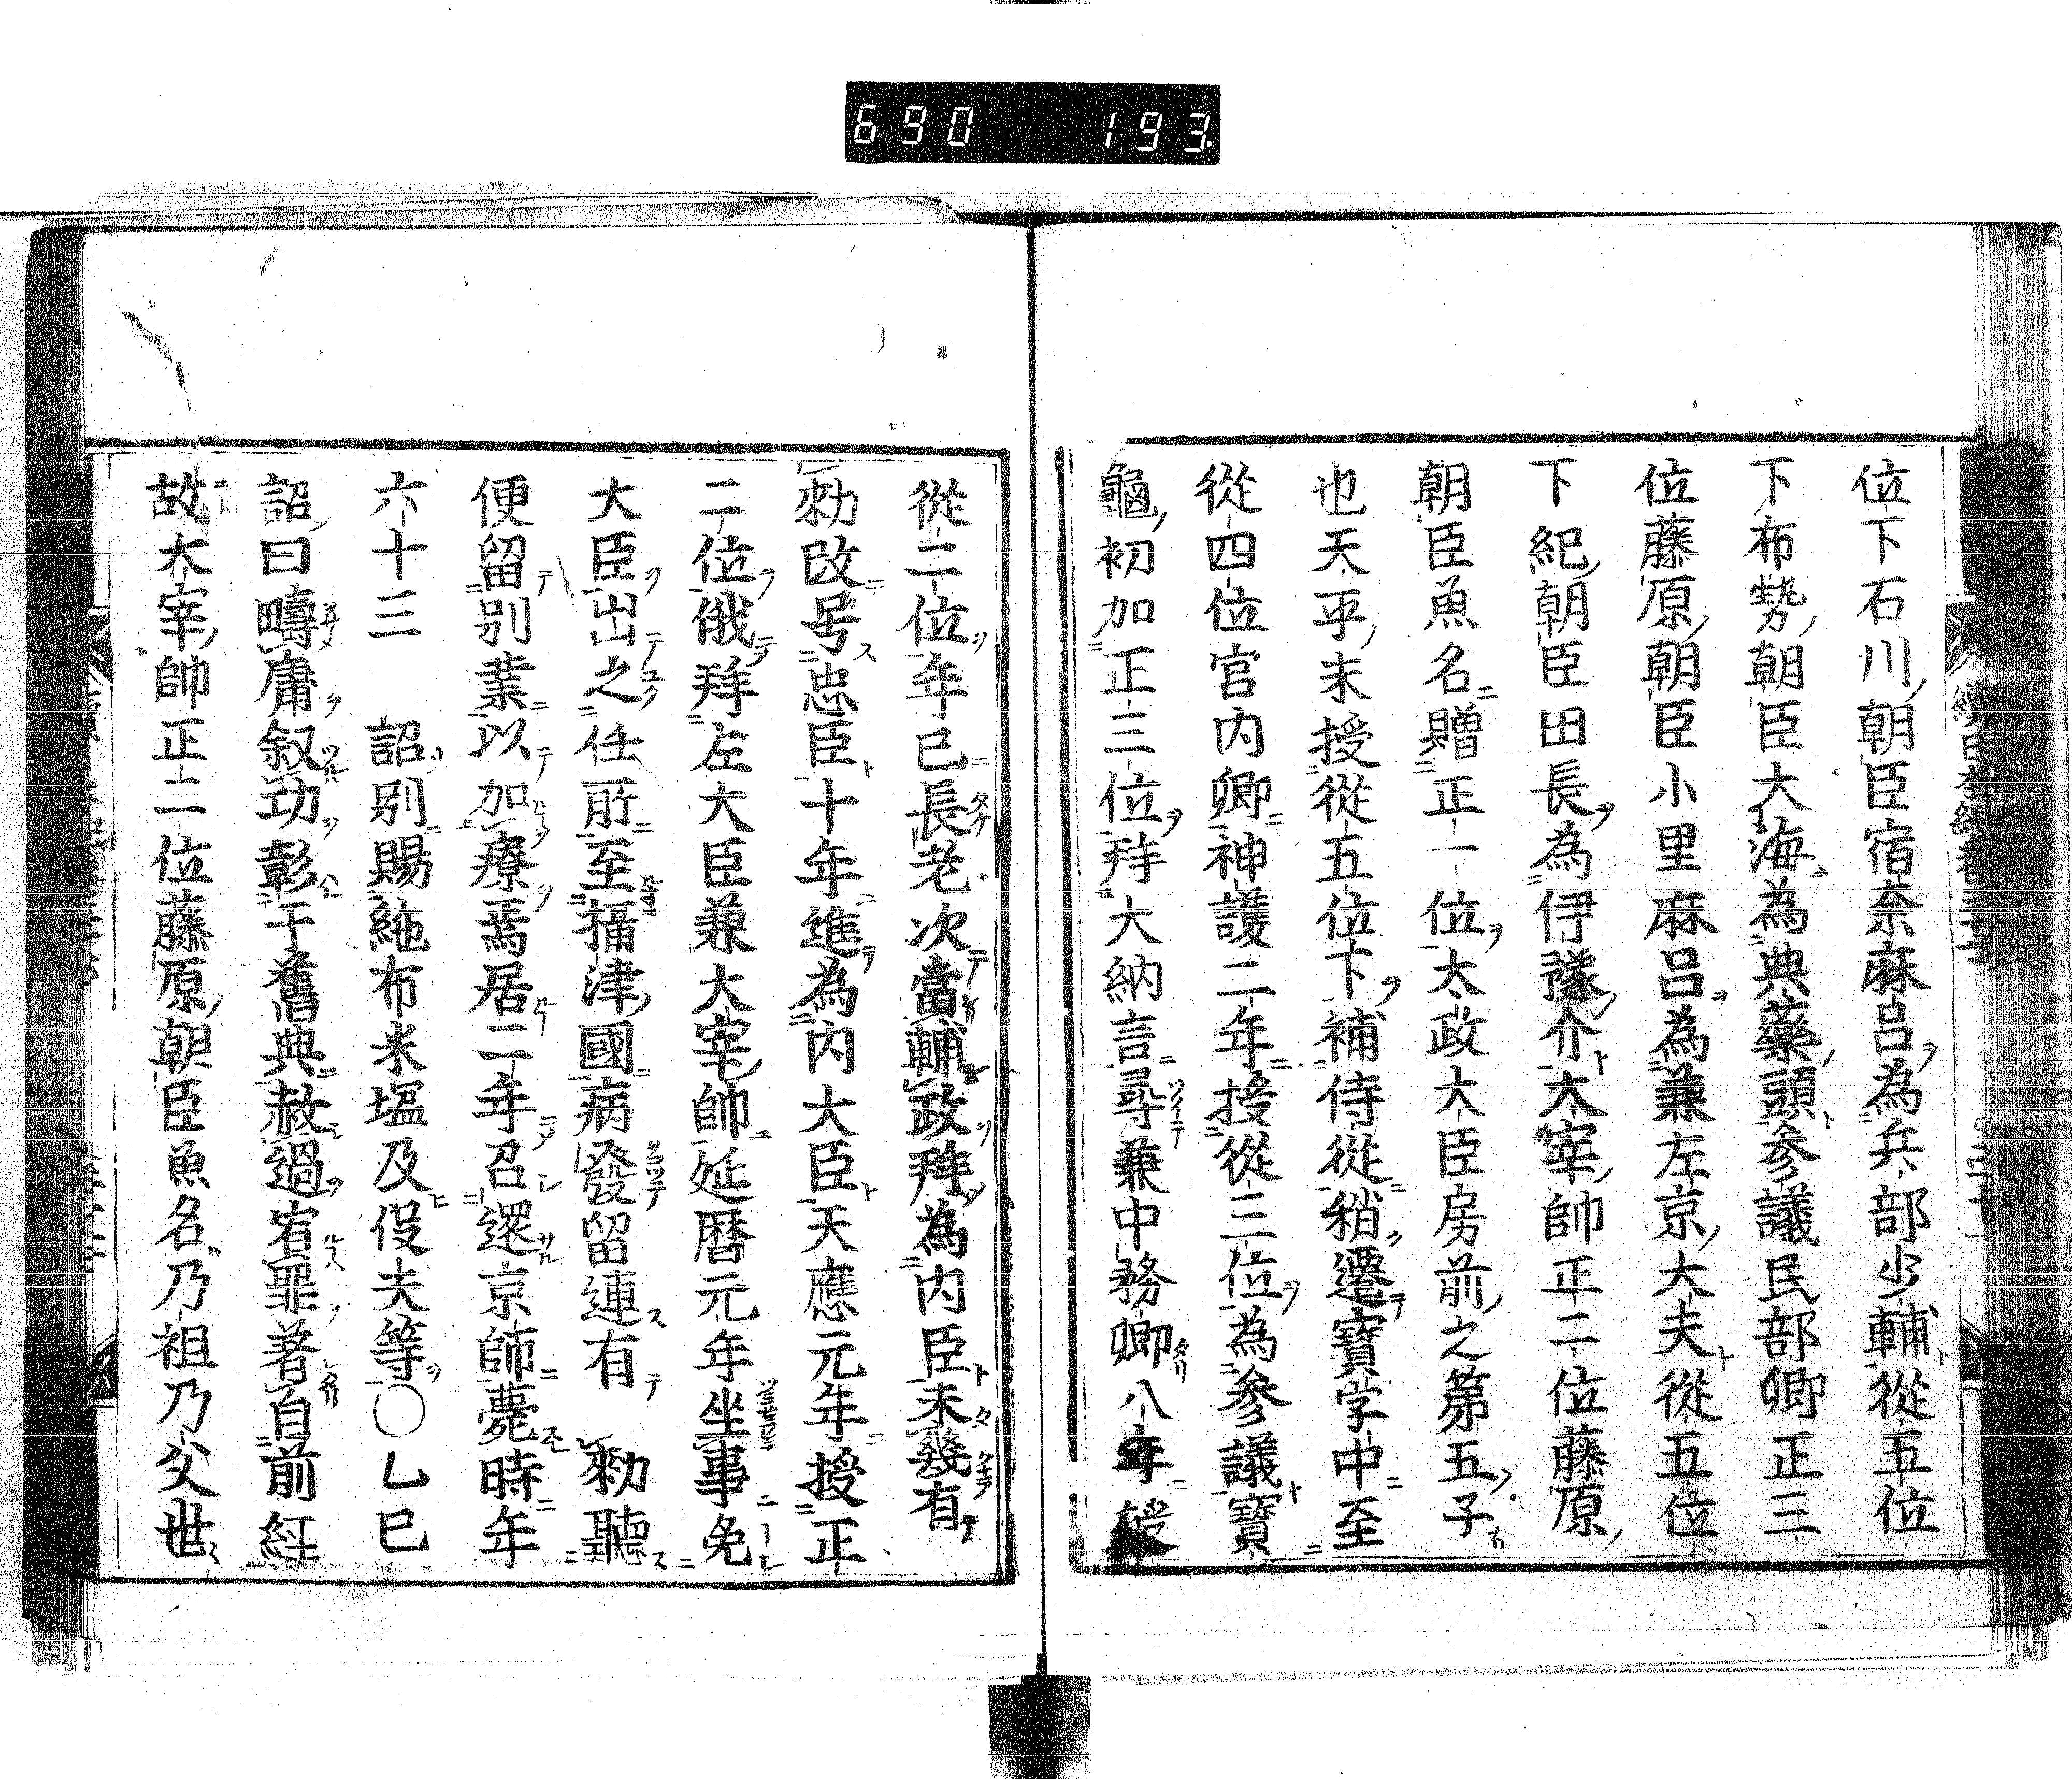 690 193
位下石川朝臣宿奈麻呂為兵部少輔從五位
下布勢朝臣大海為典藥頭參議民部卿正三
位藤原朝臣小里麻呂為兼左京大夫從五位
下紀朝臣田長為伊豫介大宰帥正二位藤原
朝臣魚名贈正一位太政大臣房前之第五子
也天平末授從五位下補侍從稍遷寶字中至
從四位宮内卿神護二年授從三位為參議寶
龜初加正三位拜大納言尋兼中務卿八年授
從二位年已長老次當輔政拜為内臣未幾有
勅改号忠臣十年進為内大臣天應元年授正
二位俄拜左大臣兼大宰帥延暦元年坐事免
大臣出之任所至攝津國病發留連有 勅聽
便留別業以加療焉居二年召還京師薨時年
六十三 詔別賜絁布米塩及役夫等〇乙巳
詔曰疇庸叙功彰于舊典赦過宥罪著自前紅
故大宰帥正二位藤原朝臣魚名乃祖乃父世